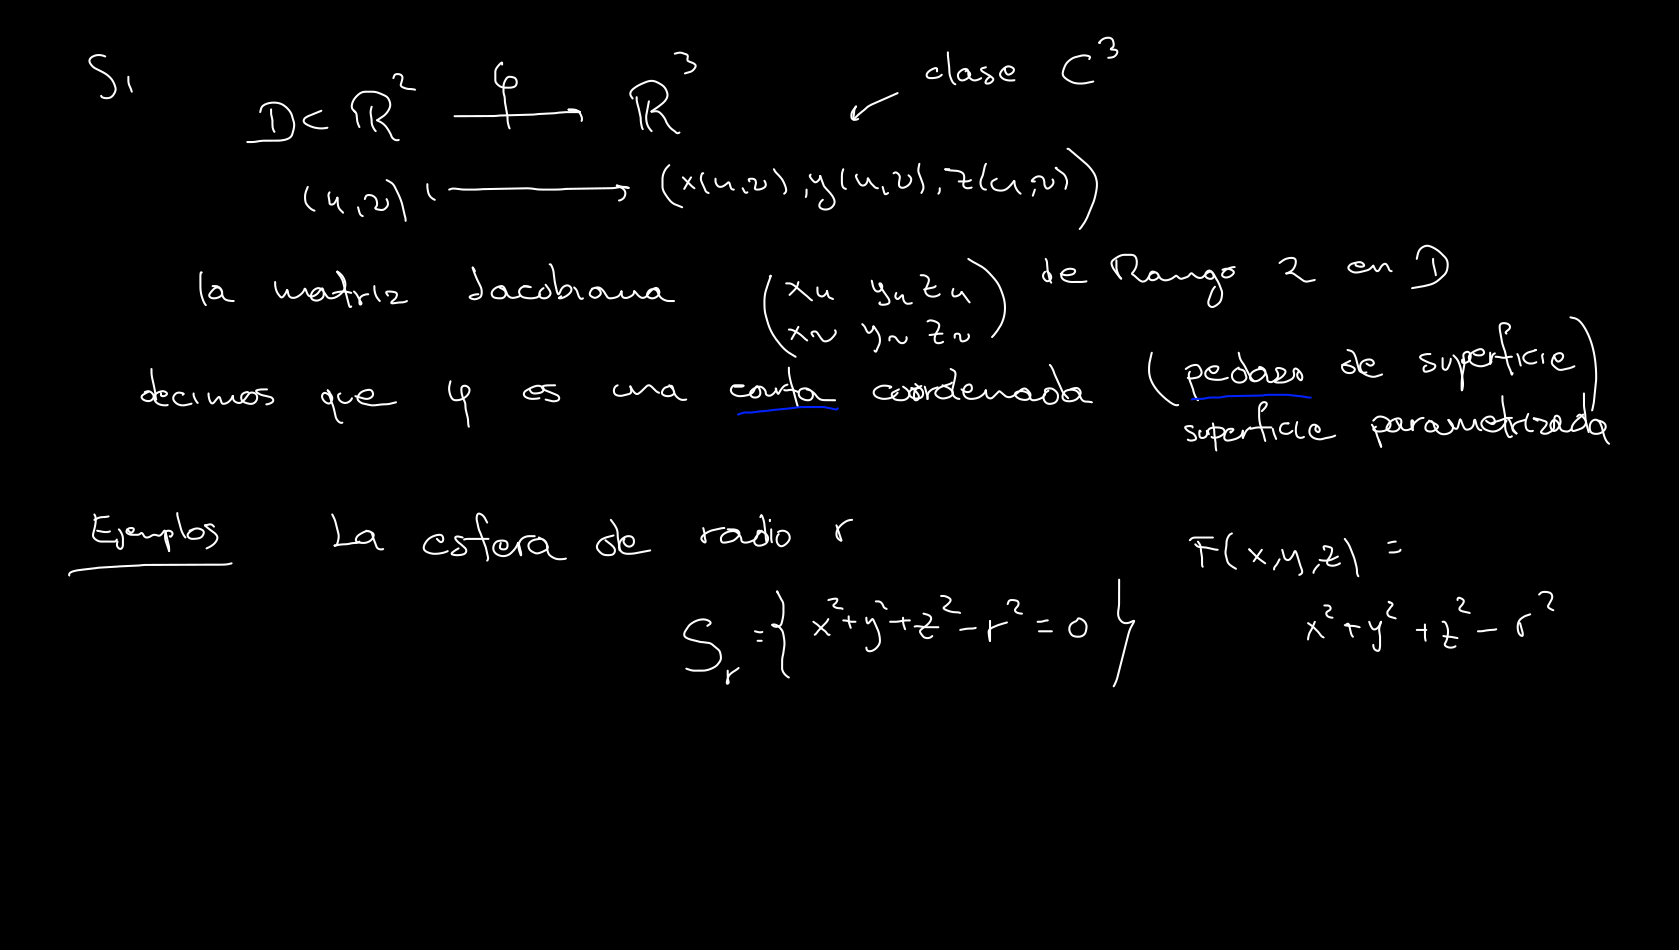 Si D ⊂ ℝ² —φ→ ℝ³ clase C³
(u,v) ⟼ (x(u,v), y(u,v), z(u,v))
la matriz Jacobiana (x_u y_u z_u / x_v y_v z_v) de Rango 2 en D
decimos que φ es una carta coordenada (pedazo de superficie)
superficie parametrizada
Ejemplos La esfera de radio r
F(x,y,z) =
S_r = { x²+y²+z²-r² = 0 } x²+y²+z²-r²